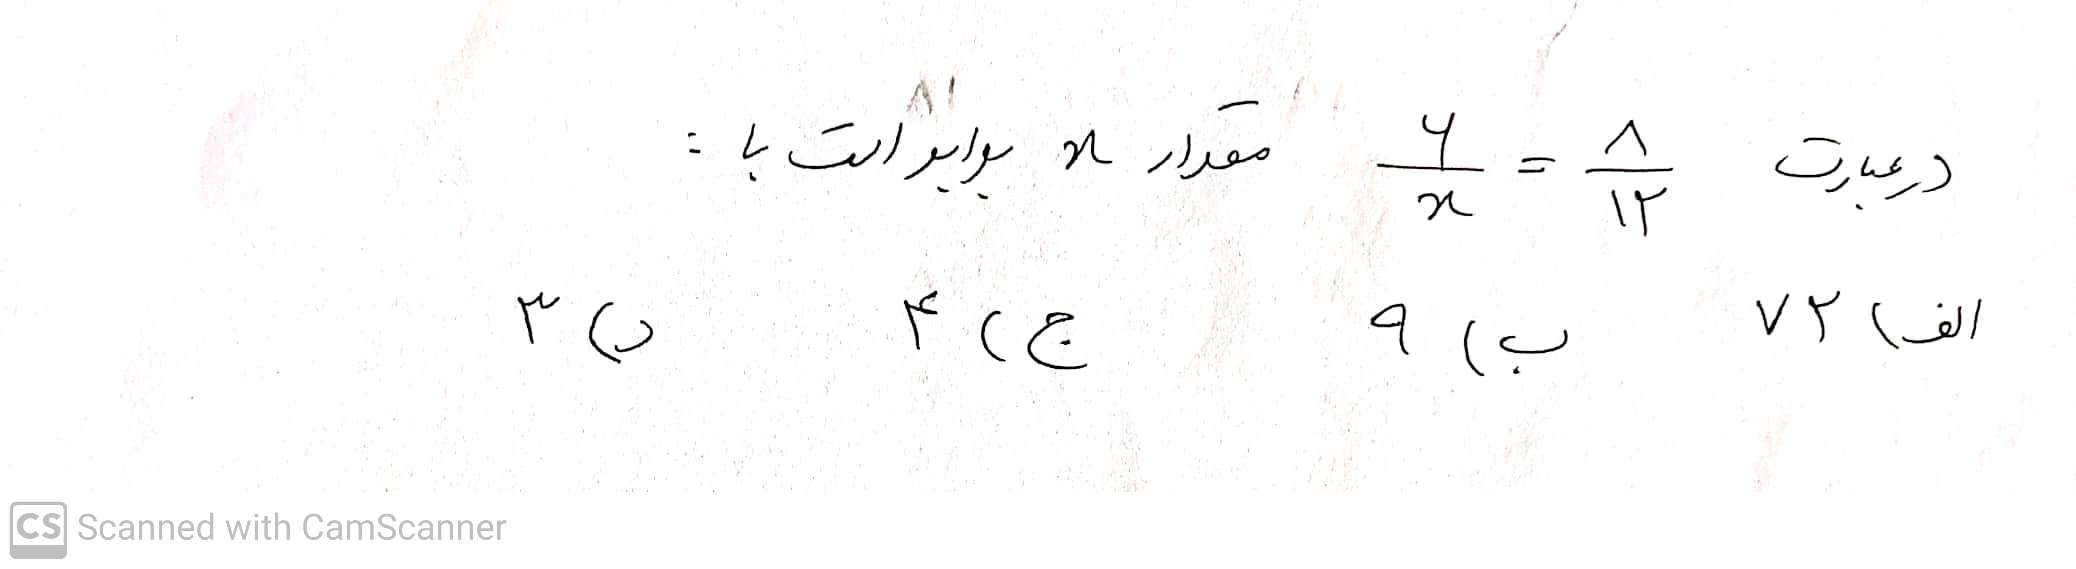 در عبارت ۸/۱۲ = ۶/x مقدار x برابر است با :
الف) ۷۲ ب) ۹ ج) ۴ د) ۳
CS Scanned with CamScanner